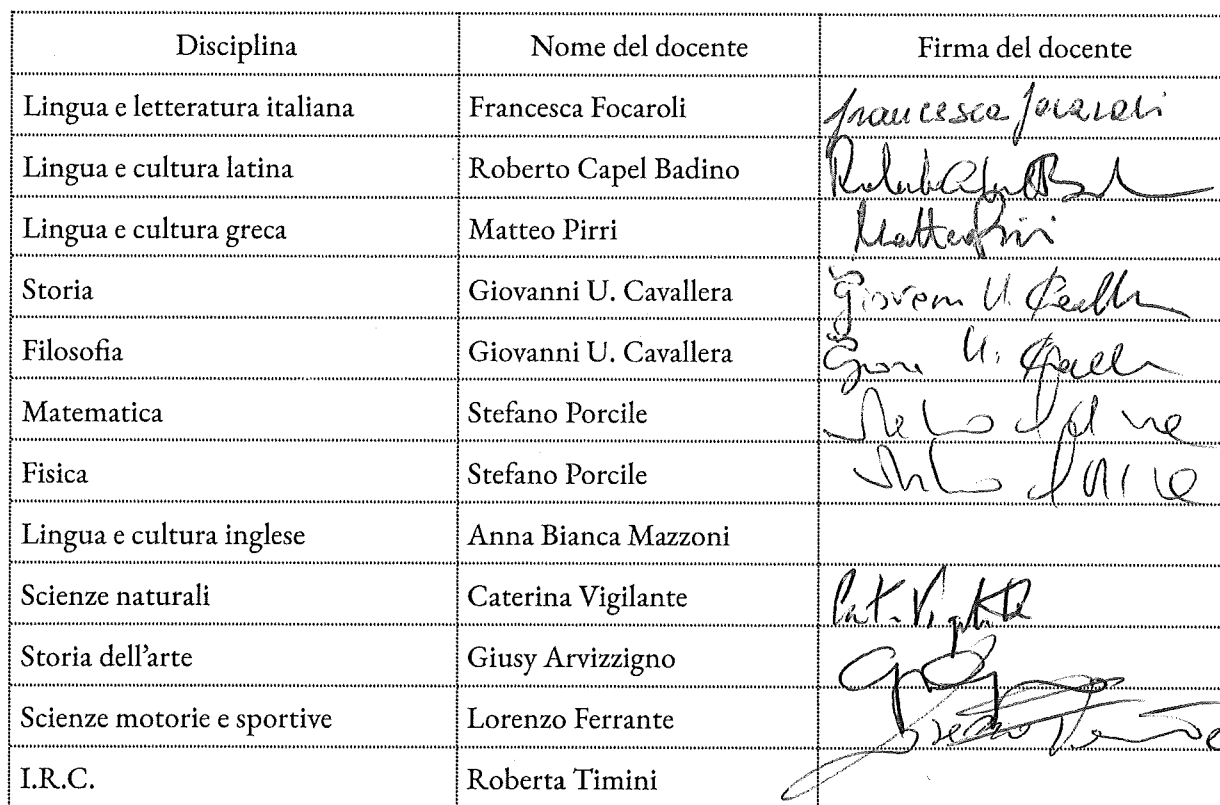 Disciplina Nome del docente Firma del docente
Lingua e letteratura italiana Francesca Focaroli Francesca Focaroli
Lingua e cultura latina Roberto Capel Badino
Lingua e cultura greca Matteo Pirri Matteo Pirri
Storia Giovanni U. Cavallera Giovanni U.
Filosofia Giovanni U. Cavallera U.
Matematica Stefano Porcile
Fisica Stefano Porcile
Lingua e cultura inglese Anna Bianca Mazzoni
Scienze naturali Caterina Vigilante
Storia dell'arte Giusy Arvizzigno
Scienze motorie e sportive Lorenzo Ferrante
I.R.C. Roberta Timini